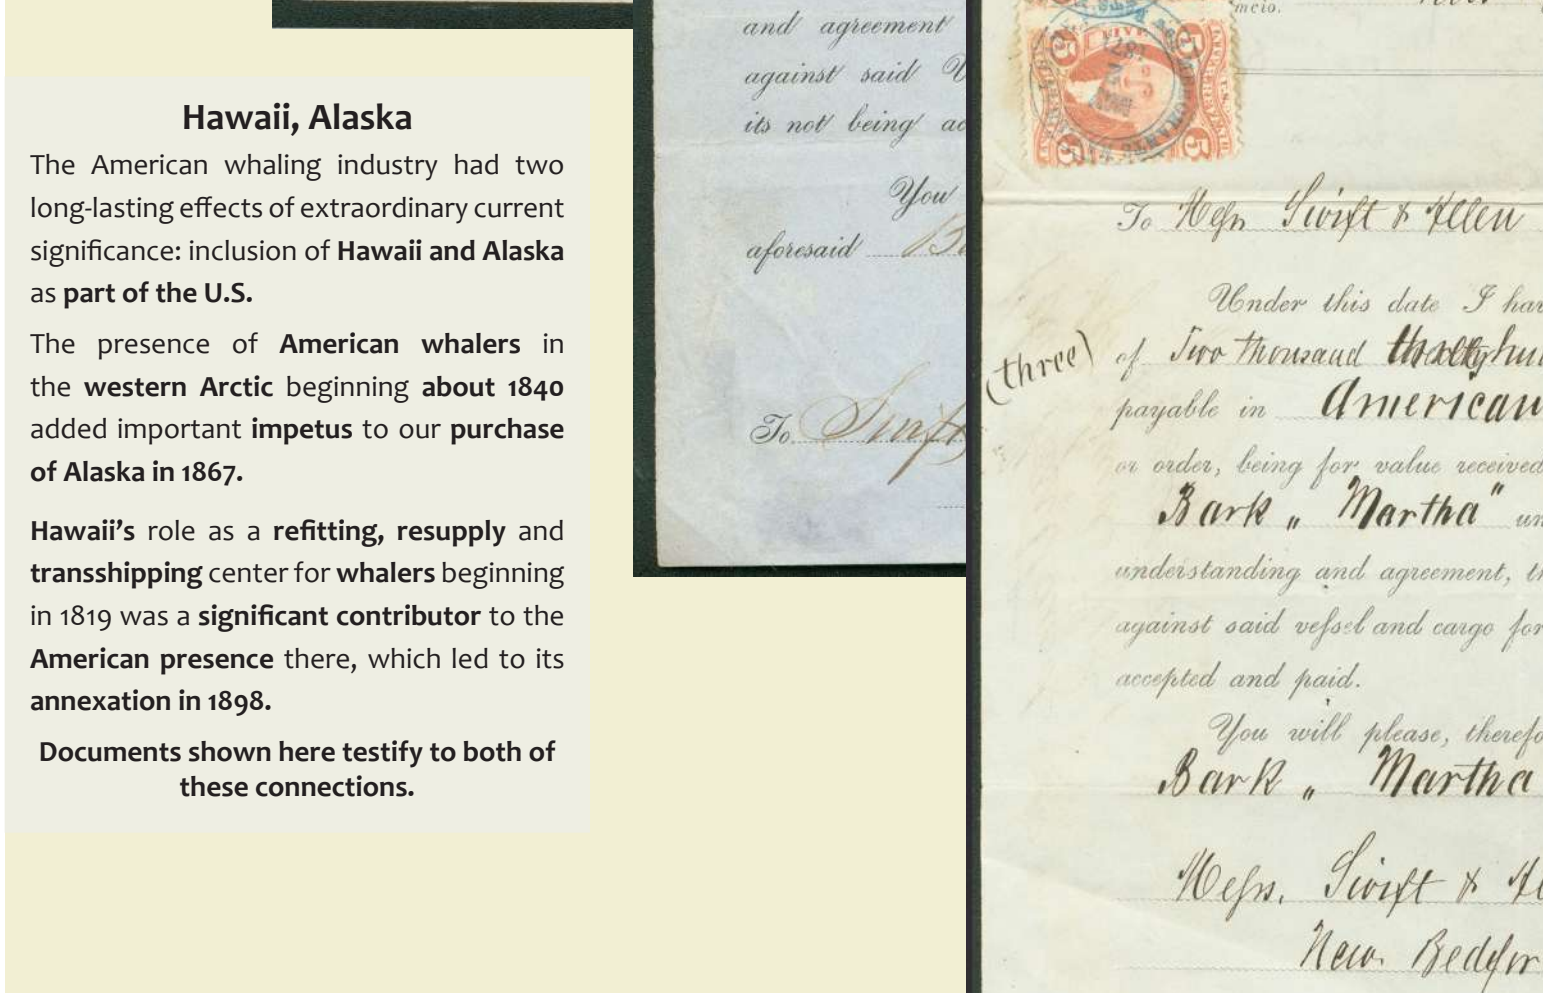 Hawaii, Alaska
The American whaling industry had two
long-lasting effects of extraordinary current
significance: inclusion of Hawaii and Alaska
as part of the U.S.
The presence of American whalers in
the western Arctic beginning about 1840
added important impetus to our purchase
of Alaska in 1867.
Hawaii's role as a refitting, resupply and
transshipping center for whalers beginning
in 1819 was a significant contributor to the
American presence there, which led to its
annexation in 1898.
Documents shown here testify to both of
these connections.
and agreement
against said
its not being
You
aforesaid
To Swift
FIVE
5 5
1871
5 5
To Messrs Swift & Allen
Under this date I
(three) of Two thousand
payable in American
or order, being for value received
Bark „ Martha"
understanding and agreement,
against said vessel and cargo for
accepted and paid.
You will please,
Bark „ Martha
Messrs. Swift &
New